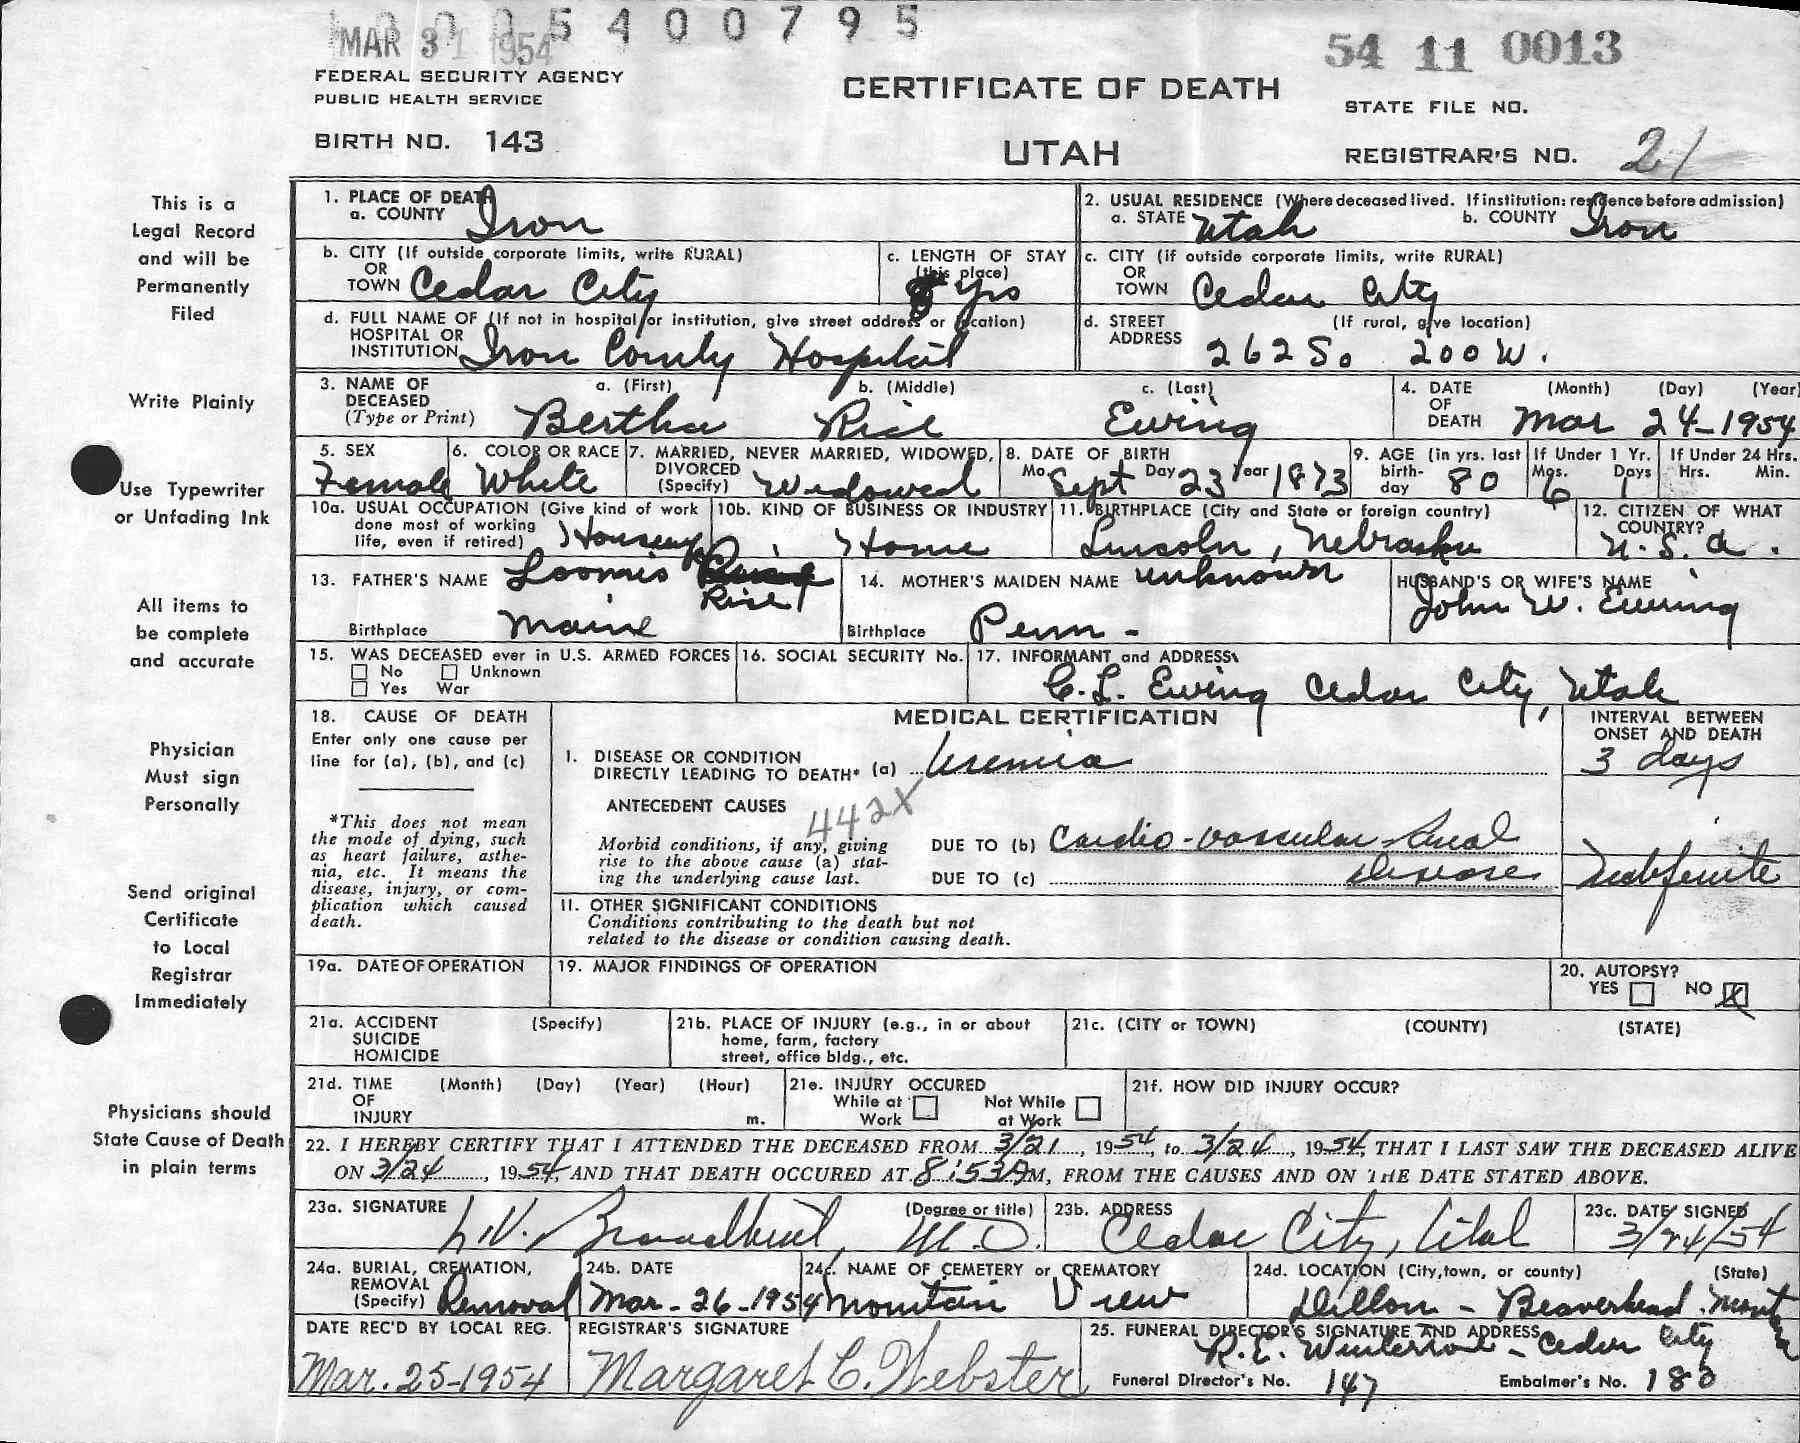 MAR 31 1954
5400795
54 11 0013
FEDERAL SECURITY AGENCY
PUBLIC HEALTH SERVICE
CERTIFICATE OF DEATH
STATE FILE NO.
BIRTH NO. 143
UTAH
REGISTRAR'S NO. 21
This is a
Legal Record
and will be
Permanently
Filed
Write Plainly
Use Typewriter
or Unfading Ink
All items to
be complete
and accurate
Physician
Must sign
Personally
Send original
Certificate
to Local
Registrar
Immediately
Physicians should
State Cause of Death
in plain terms
1. PLACE OF DEATH
a. COUNTY Iron
2. USUAL RESIDENCE (Where deceased lived. If institution: residence before admission)
a. STATE Utah b. COUNTY Iron
b. CITY (If outside corporate limits, write RURAL)
OR
TOWN Cedar City
c. LENGTH OF STAY
(this place)
Yrs
c. CITY (if outside corporate limits, write RURAL)
OR
TOWN Cedar City
d. FULL NAME OF (If not in hospital or institution, give street address or location)
HOSPITAL OR
INSTITUTION Iron County Hospital
d. STREET (If rural, give location)
ADDRESS 262 So 200 W.
3. NAME OF DECEASED
(Type or Print)
a. (First) b. (Middle) c. (Last)
Bertha Rice Ewing
4. DATE OF DEATH (Month) (Day) (Year)
Mar 24-1954
5. SEX
Female
6. COLOR OR RACE
White
7. MARRIED, NEVER MARRIED, WIDOWED,
DIVORCED
(Specify) Widowed
8. DATE OF BIRTH
Mo. Sept Day 23 Year 1873
9. AGE (in yrs. last
birth-
day 80
If Under 1 Yr.
Mos. Days
6 1
If Under 24 Hrs.
Hrs. Min.
10a. USUAL OCCUPATION (Give kind of work
done most of working
life, even if retired)
10b. KIND OF BUSINESS OR INDUSTRY
Home
11. BIRTHPLACE (City and State or foreign country)
Lincoln, Nebraska
12. CITIZEN OF WHAT
COUNTRY?
U.S.A.
13. FATHER'S NAME Loomis Rice
Birthplace Maine
14. MOTHER'S MAIDEN NAME unknown
Birthplace Penn-
HUSBAND'S OR WIFE'S NAME
John W. Ewing
15. WAS DECEASED ever in U.S. ARMED FORCES
No Unknown
Yes War
16. SOCIAL SECURITY No.
17. INFORMANT and ADDRESS
C. L. Ewing Cedar City, Utah
18. CAUSE OF DEATH
Enter only one cause per
line for (a), (b), and (c)
*This does not mean
the mode of dying, such
as heart failure, asthe-
nia, etc. It means the
disease, injury, or com-
plication which caused
death.
MEDICAL CERTIFICATION
INTERVAL BETWEEN
ONSET AND DEATH
1. DISEASE OR CONDITION
DIRECTLY LEADING TO DEATH* (a) Uremia
3 days
ANTECEDENT CAUSES
442X
Morbid conditions, if any, giving
rise to the above cause (a) stat-
ing the underlying cause last.
DUE TO (b) Cardio-vascular-Renal
DUE TO (c) Disease
Indefinite
11. OTHER SIGNIFICANT CONDITIONS
Conditions contributing to the death but not
related to the disease or condition causing death.
19a. DATE OF OPERATION
19. MAJOR FINDINGS OF OPERATION
20. AUTOPSY?
YES NO X
21a. ACCIDENT (Specify)
SUICIDE
HOMICIDE
21b. PLACE OF INJURY (e.g., in or about
home, farm, factory
street, office bldg., etc.
21c. (CITY or TOWN) (COUNTY) (STATE)
21d. TIME (Month) (Day) (Year) (Hour)
OF
INJURY m.
21e. INJURY OCCURED
While at Work Not While at Work
21f. HOW DID INJURY OCCUR?
22. I HEREBY CERTIFY THAT I ATTENDED THE DECEASED FROM 3/21, 1954, to 3/24, 1954, THAT I LAST SAW THE DECEASED ALIVE
ON 3/24, 1954, AND THAT DEATH OCCURED AT 8:53 AM, FROM THE CAUSES AND ON THE DATE STATED ABOVE.
23a. SIGNATURE (Degree or title)
L.V. Broadbent, M.D.
23b. ADDRESS
Cedar City, Utah
23c. DATE SIGNED
3/24/54
24a. BURIAL, CREMATION,
REMOVAL
(Specify) Removal
24b. DATE
Mar-26-1954
24c. NAME OF CEMETERY or CREMATORY
Mountain View
24d. LOCATION (City, town, or county) (State)
Dillon - Beaverhead. Montana
DATE REC'D BY LOCAL REG.
Mar. 25-1954
REGISTRAR'S SIGNATURE
Margaret C. Webster
25. FUNERAL DIRECTOR'S SIGNATURE AND ADDRESS
R.E. - Cedar City
Funeral Director's No. 147 Embalmer's No. 180